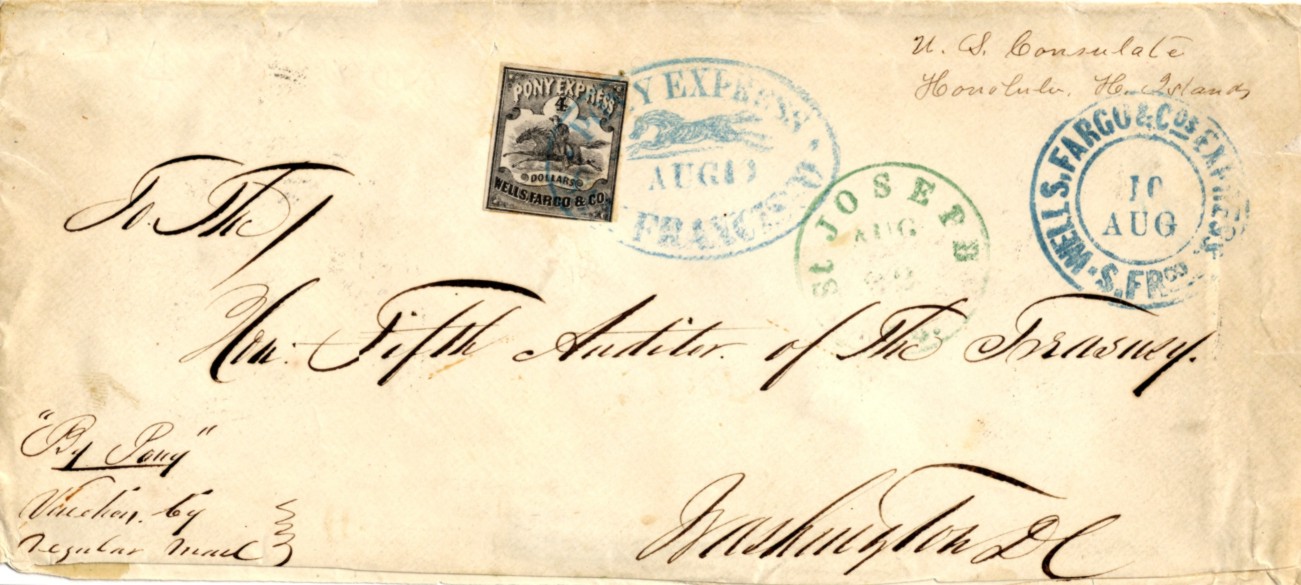 U. S. Consulate
Honolulu, H. Islands
PONY EXPRESS
4
DOLLARS
WELLS, FARGO & CO.
PONY EXPRESS
AUG
FRANCISCO
St JOSEPH
AUG
WELLS, FARGO & Cos EXPRESS
10
AUG
S. FRco
To The
Hon. Fifth Auditor of The Treasury.
"By Pony"
regular mail
Washington DC